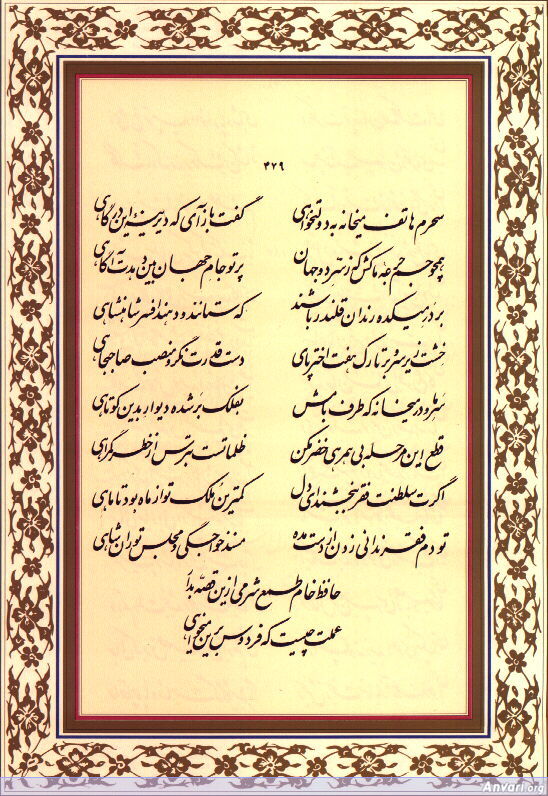 ۴۲۹
سحرم هاتف میخانه به دولتخواهی گفت بازآی که دیرینهٔ این درگاهی
همچو جم جرعهٔ ما کش که ز سرّ دو جهان پرتو جام جهان بین دهدت آگاهی
بر در میکده رندان قلندر باشند که ستانند و دهند افسر شاهنشاهی
خشت زیر سر و بر تارک هفت اختر پای دست قدرت نگر و منصب صاحبجاهی
سر ما و در میخانه که طرف بامش بفلک بر شده دیوار بدین کوتاهی
قطع این مرحله بی همرهی خضر مکن ظلماتست بترس از خطر گمراهی
اگرت سلطنت فقر ببخشند ای دل کمترین ملک تو از ماه بود تا ماهی
تو دم فقر ندانی زدن از دست مده مسند خواجگی و مجلس تورانشاهی
حافظ خام طمع شرمی ازین قصّه بدار
عملت چیست که فردوس برین میخواهی
Anvari.org